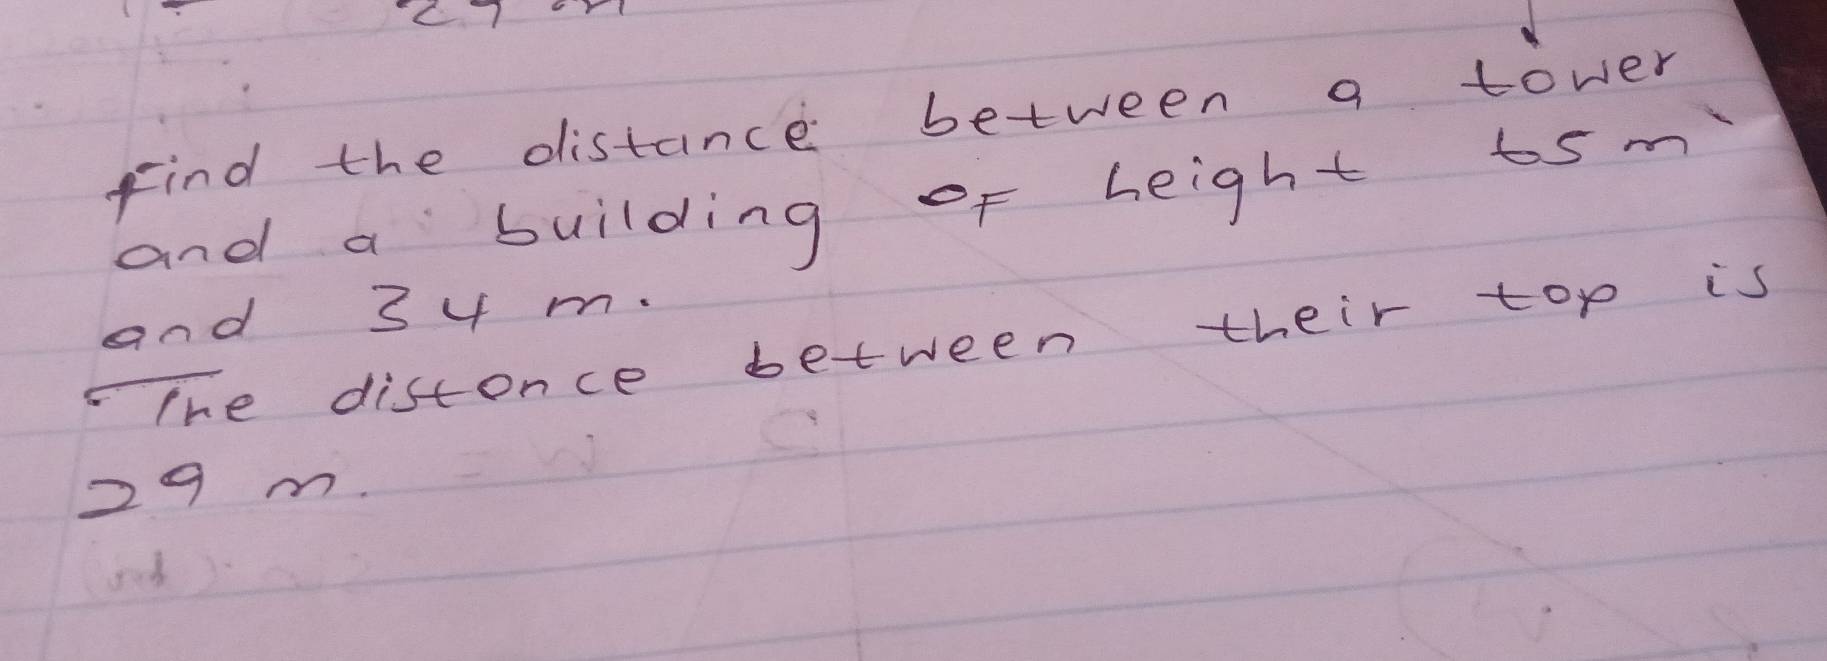 find the distance between a tower
and a building of height 65 m
and 34 m.
The distance between their top is
29 m.